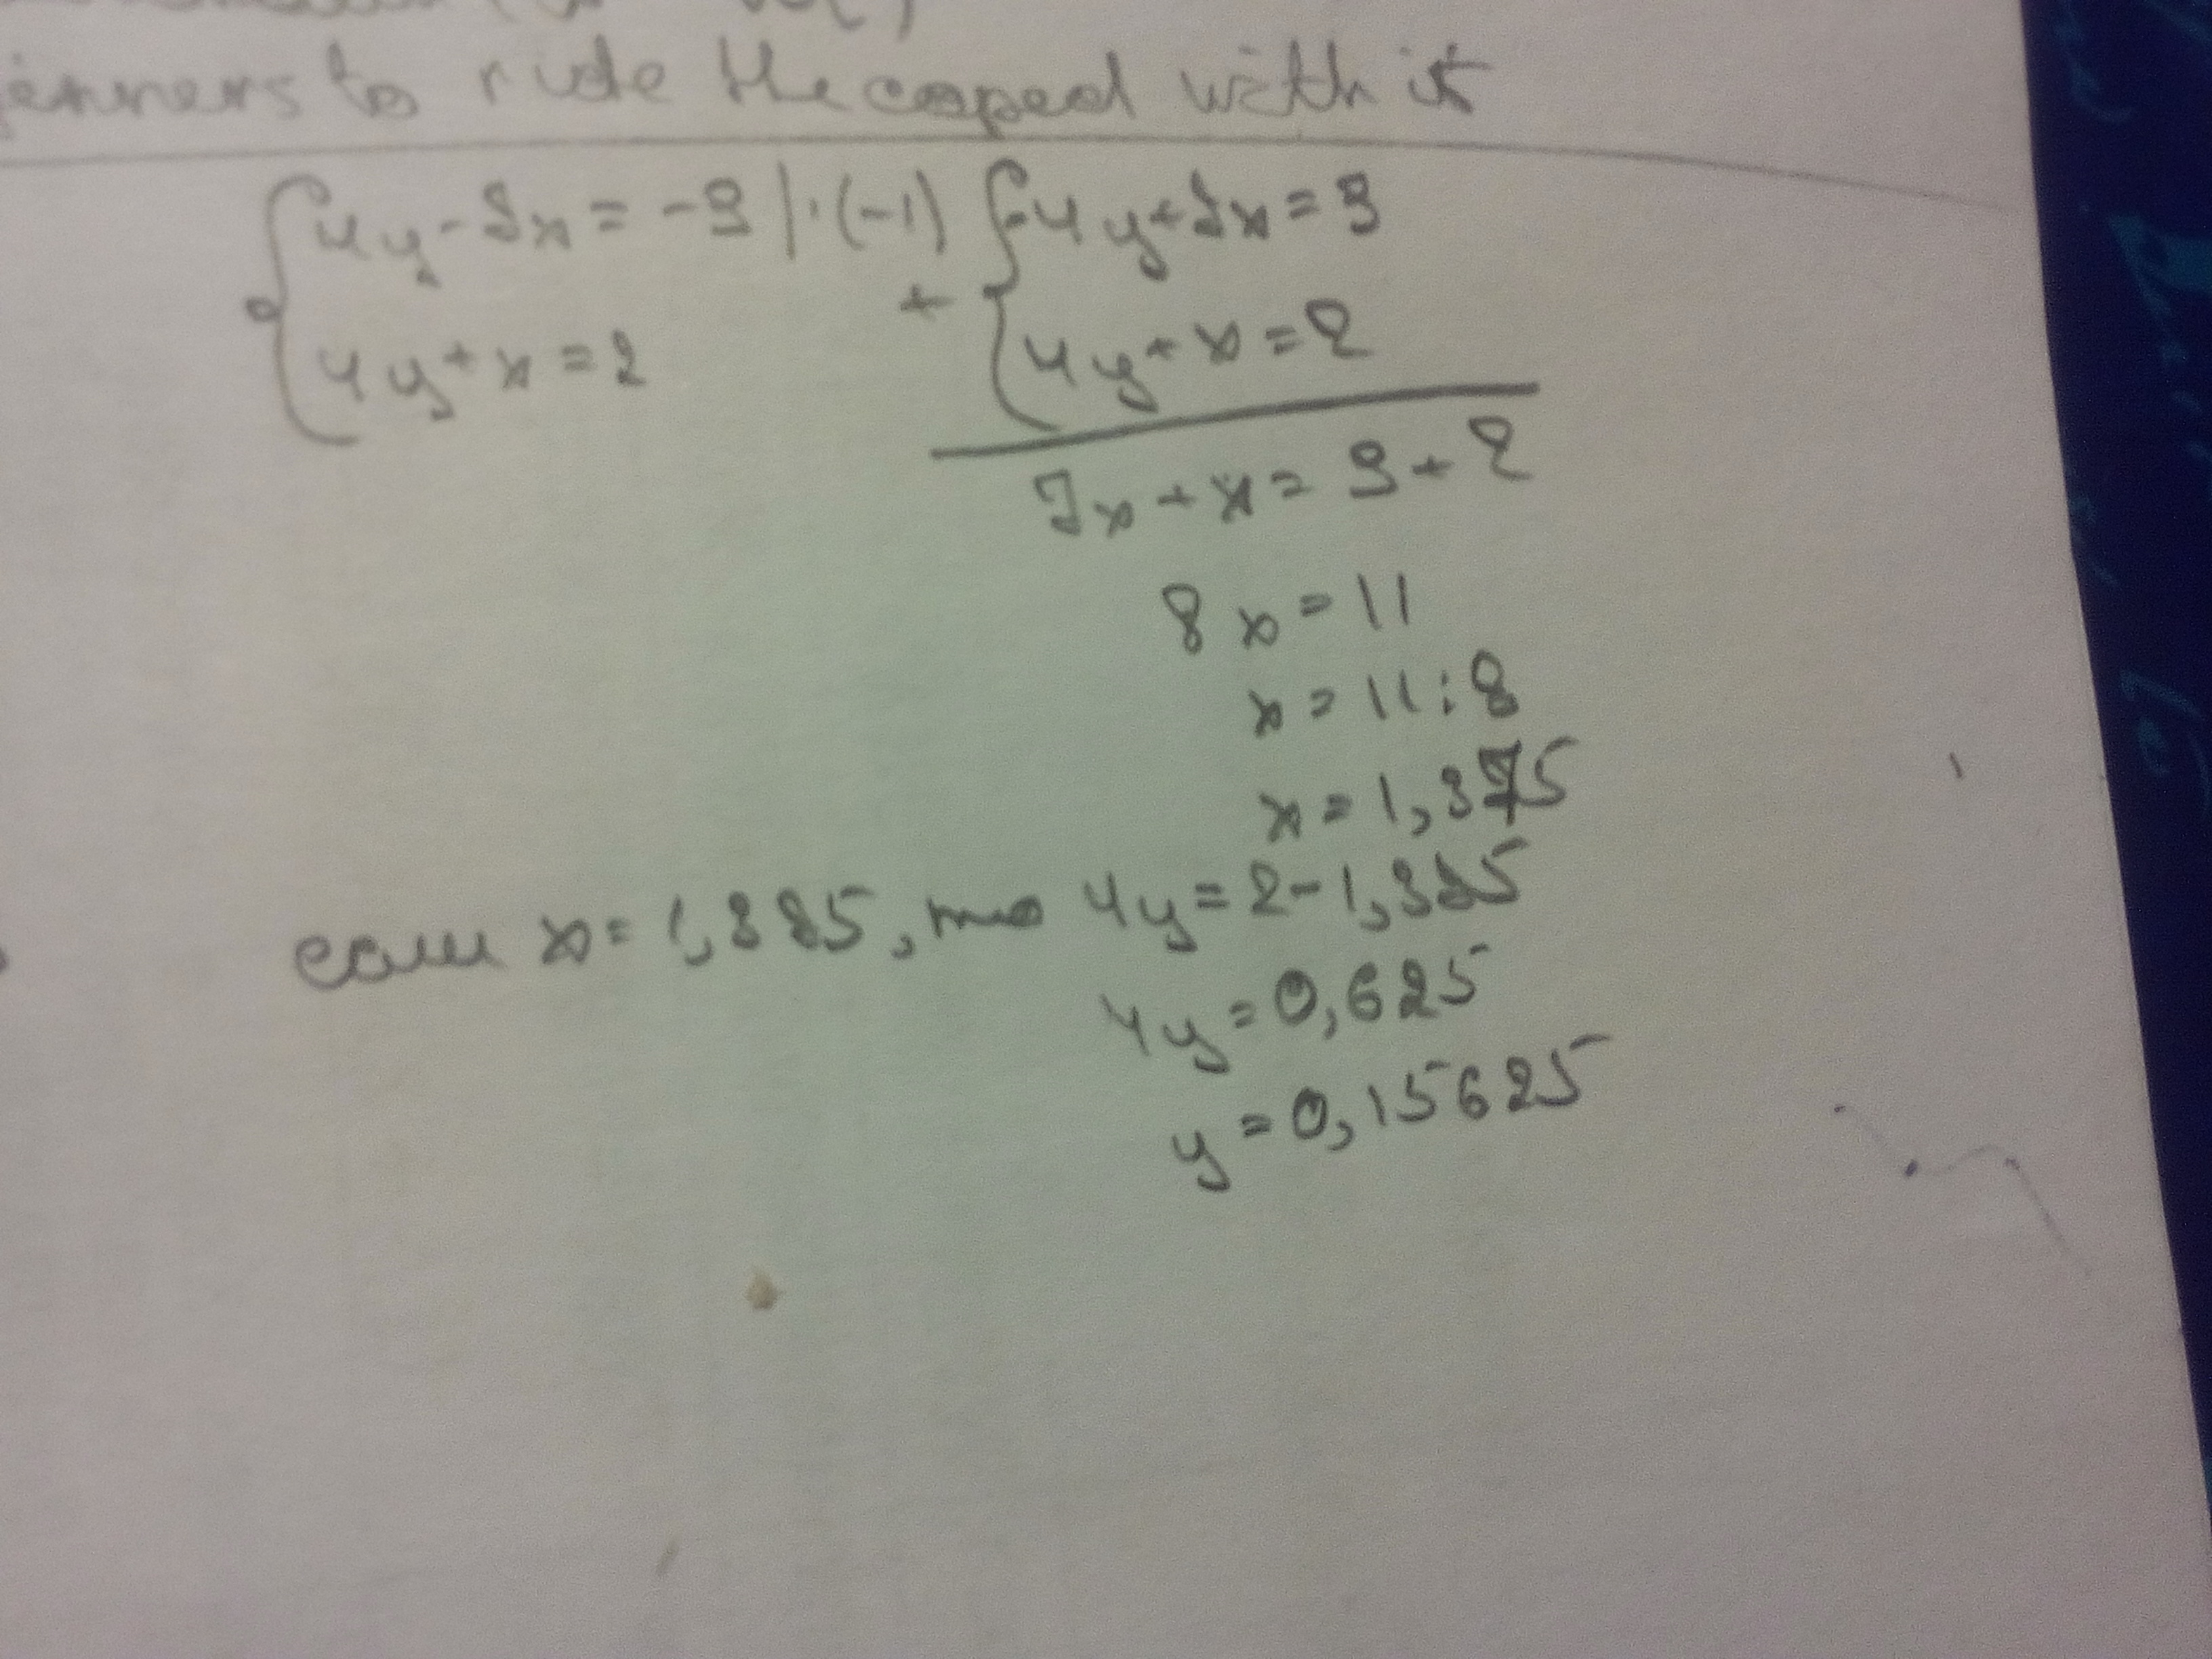 to ride the coped with it
{4y - 7x = -9 | ·(-1) {-4y + 7x = 9
4y + x = 2 + 4y + x = 2
7x + x = 9 + 2
8x = 11
x = 11 : 8
x = 1,375
если x = 1,375, то 4y = 2 - 1,375
4y = 0,625
y = 0,15625